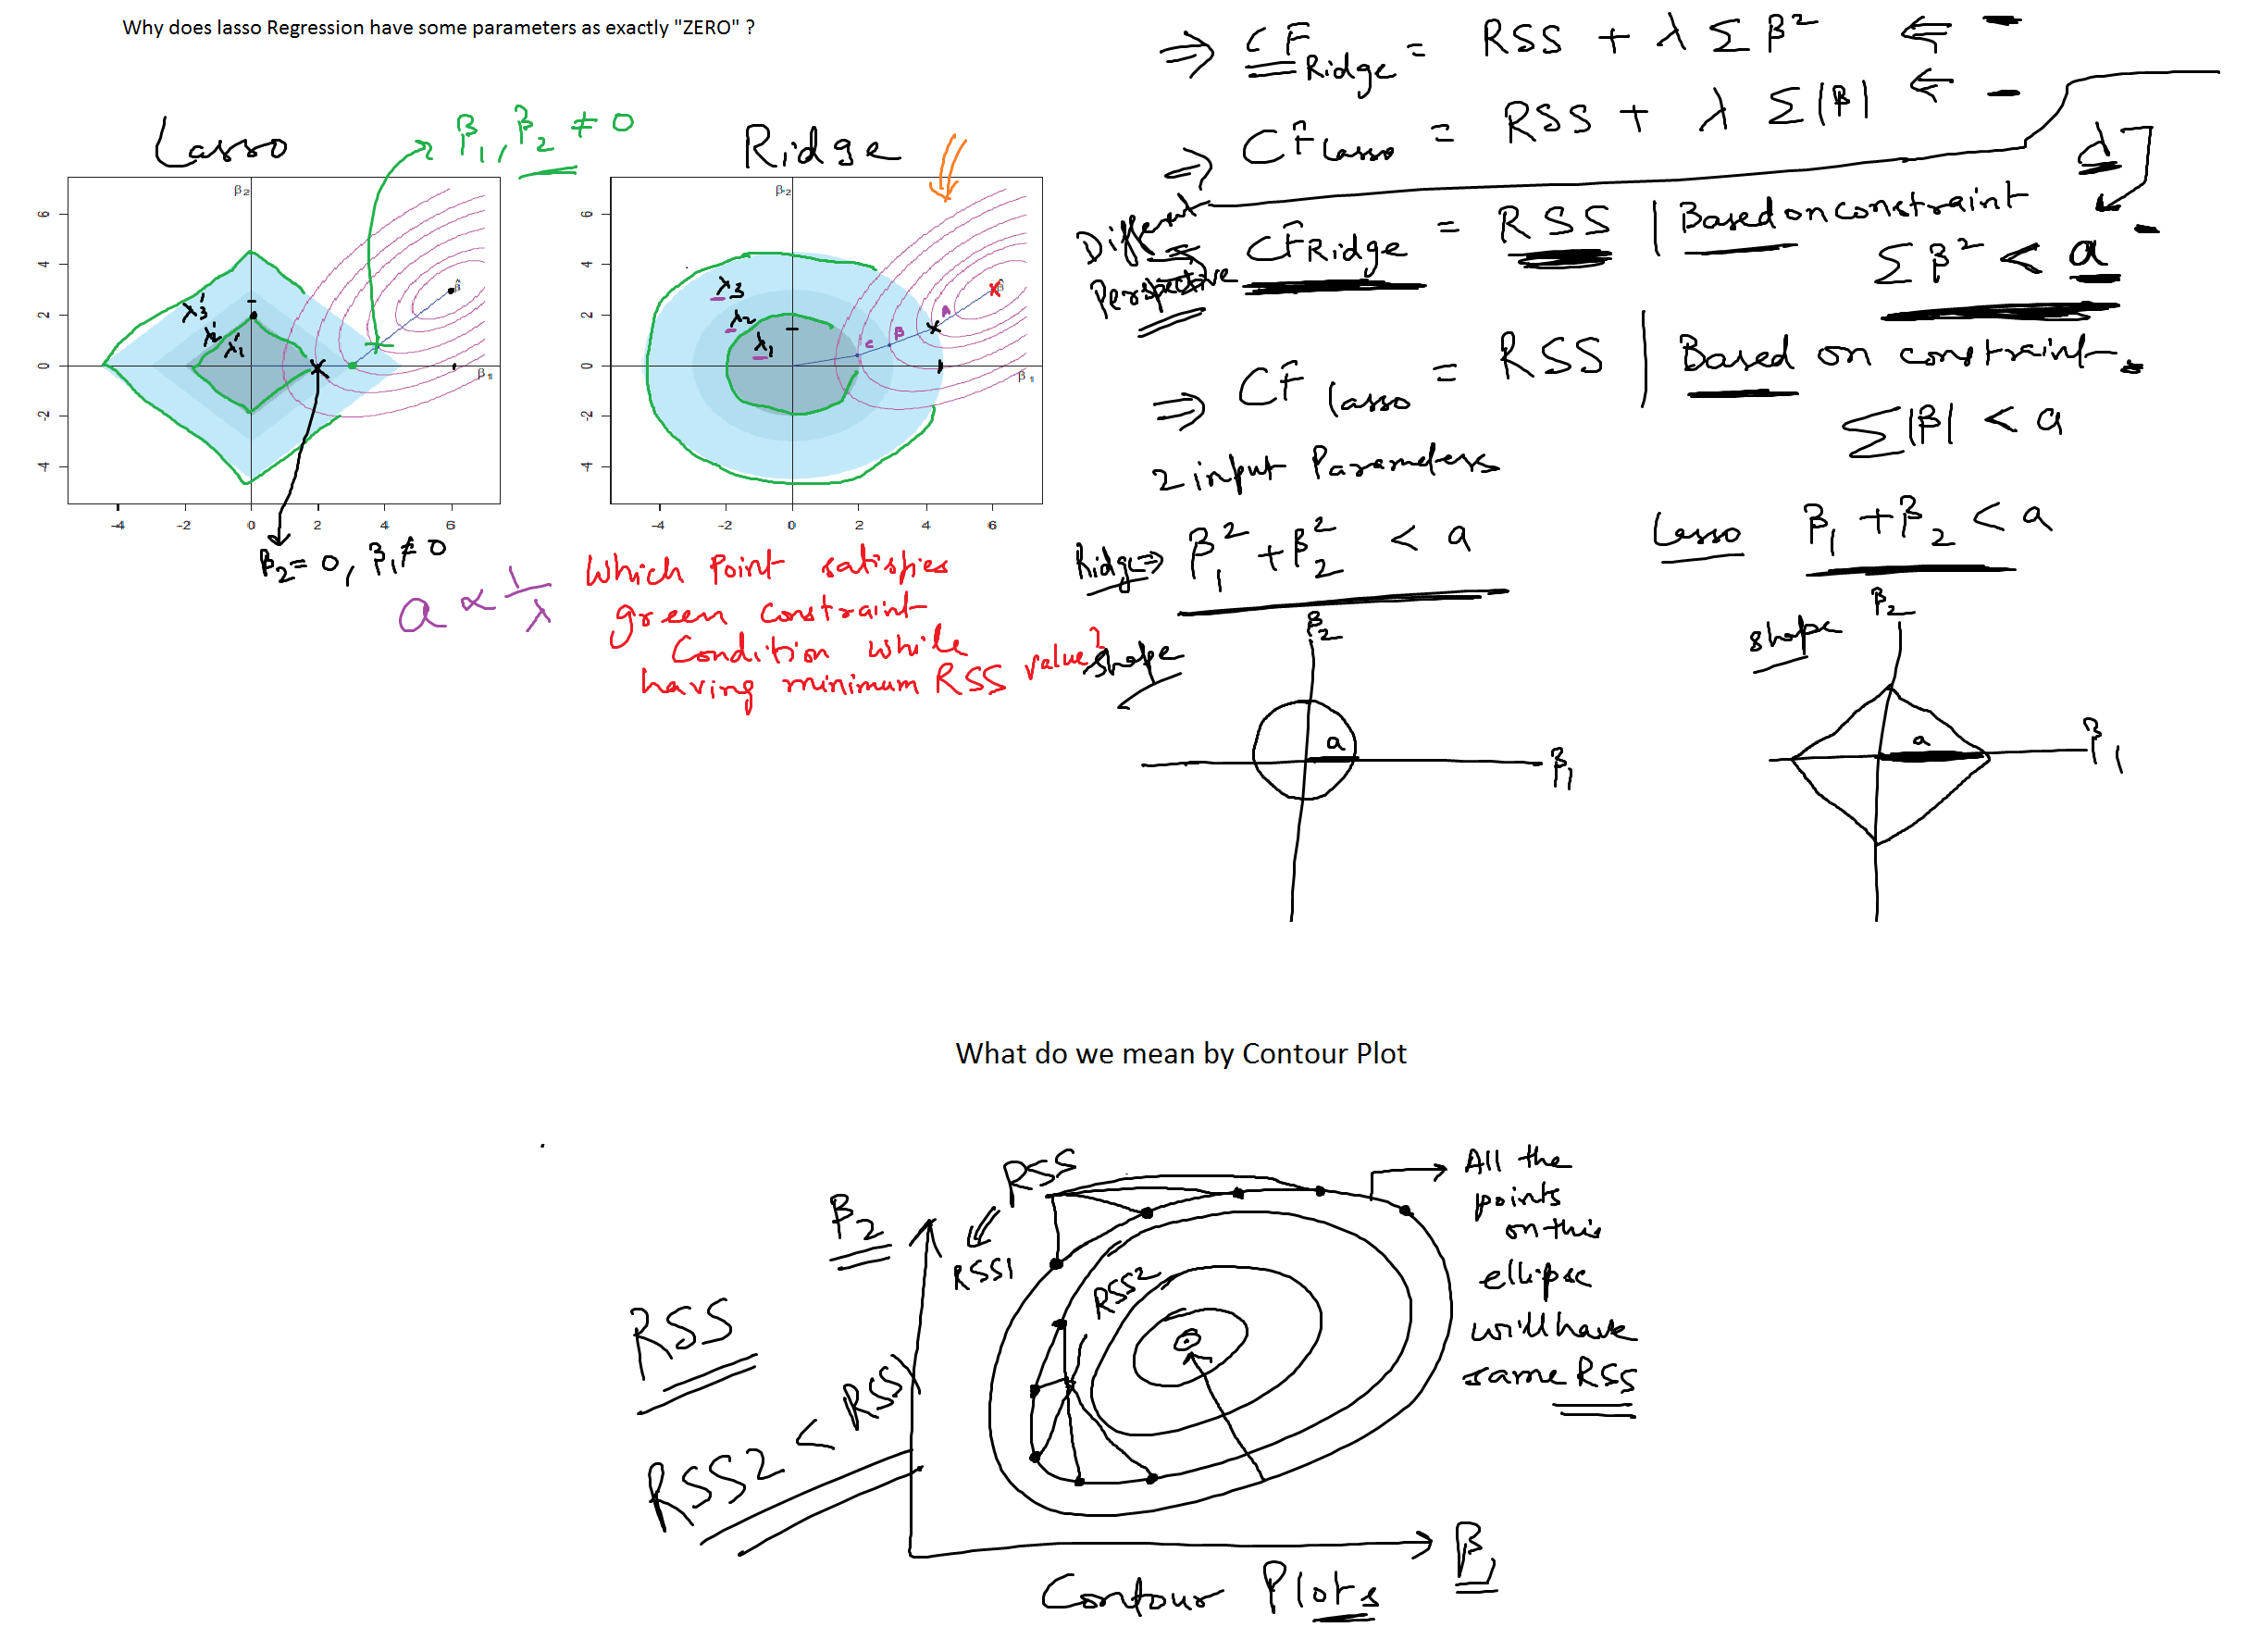 Why does lasso Regression have some parameters as exactly "ZERO" ?
Lasso
β₁, β₂ ≠ 0
Ridge
β₂
6
4
2
0
-2
-4
λ₃'
λ₂'
λ₁'
β̂
β₁
-4 -2 0 2 4 6
β₂ = 0, β₁ ≠ 0
a ∝ 1/λ
β₂
6
4
2
0
-2
-4
λ₃
λ₂
λ₁
A
B
C
β̂
β₁
-4 -2 0 2 4 6
Which Point satisfies
green constraint
Condition while
having minimum RSS value?
⇒ CF Ridge = RSS + λ Σ β² ⇐ -
⇒ CF Lasso = RSS + λ Σ |β| ⇐ -
d
Different
Perspective
⇒ CF Ridge = RSS | Based on constraint
Σ β² < a -
⇒ CF lasso = RSS | Based on constraint -
Σ |β| < a
2 input Parameters
Ridge ⇒ β₁² + β₂² < a
Lasso β₁ + β₂ < a
shape
β₂
a
β₁
shape
β₂
a
β₁
What do we mean by Contour Plot
RSS
β₂
RSS1
RSS2
All the
points
on this
ellipse
will have
same RSS
RSS
RSS2 < RSS1
β₁
Contour Plots